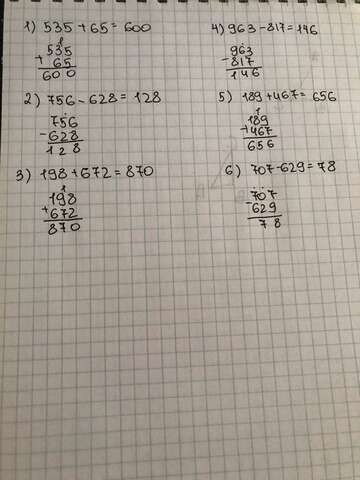 1) 535 + 65 = 600
1
535
+ 65
600
2) 756 - 628 = 128
756
- 628
128
3) 198 + 672 = 870
1
198
+ 672
870
4) 963 - 817 = 146
963
- 817
146
5) 189 + 467 = 656
1
189
+ 467
656
6) 707 - 629 = 78
707
- 629
78